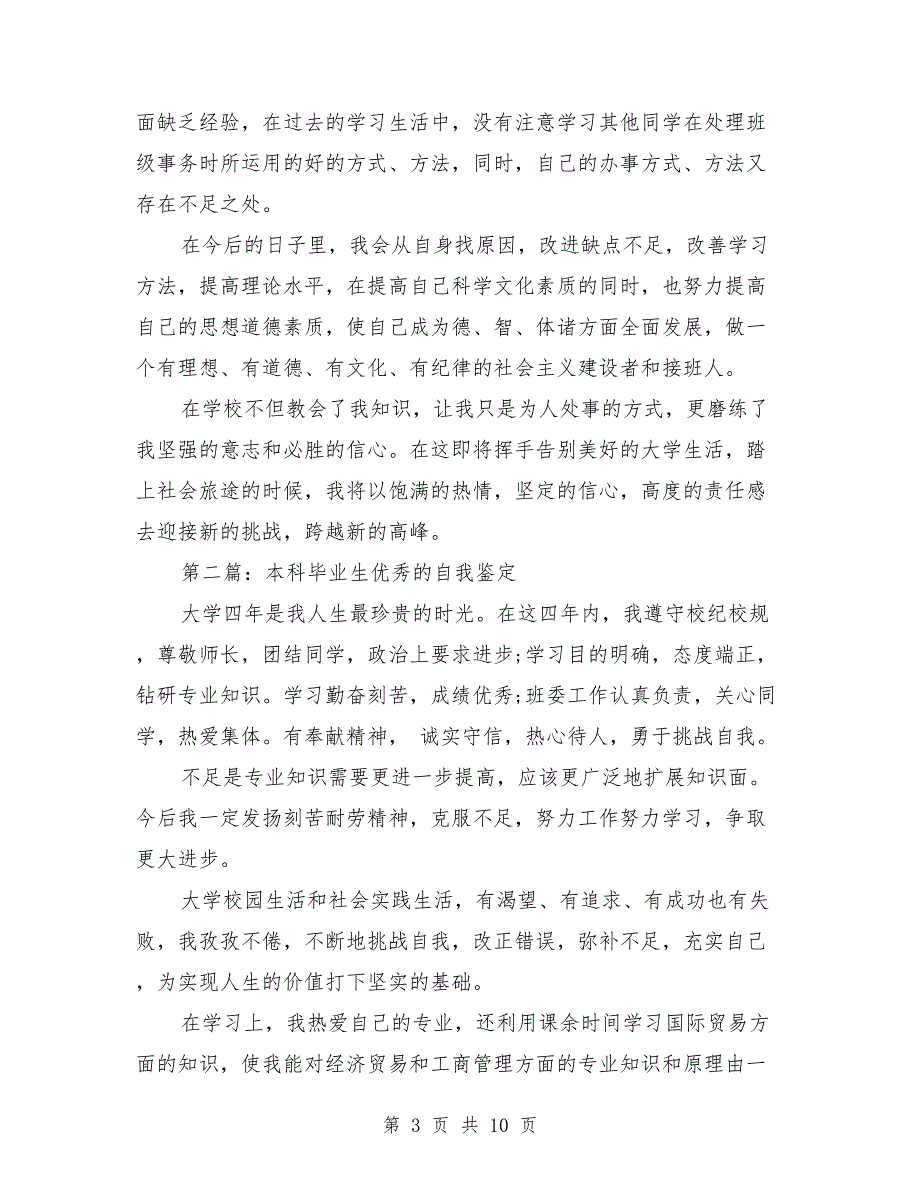 面缺乏经验，在过去的学习生活中，没有注意学习其他同学在处理班
级事务时所运用的好的方式、方法，同时，自己的办事方式、方法又
存在不足之处。
在今后的日子里，我会从自身找原因，改进缺点不足，改善学习
方法，提高理论水平，在提高自己科学文化素质的同时，也努力提高
自己的思想道德素质，使自己成为德、智、体诸方面全面发展，做一
个有理想、有道德、有文化、有纪律的社会主义建设者和接班人。
在学校不但教会了我知识，让我只是为人处事的方式，更磨练了
我坚强的意志和必胜的信心。在这即将挥手告别美好的大学生活，踏
上社会旅途的时候，我将以饱满的热情，坚定的信心，高度的责任感
去迎接新的挑战，跨越新的高峰。
第二篇：本科毕业生优秀的自我鉴定
大学四年是我人生最珍贵的时光。在这四年内，我遵守校纪校规
，尊敬师长，团结同学，政治上要求进步;学习目的明确，态度端正，
钻研专业知识。学习勤奋刻苦，成绩优秀;班委工作认真负责，关心同
学，热爱集体。有奉献精神， 诚实守信，热心待人，勇于挑战自我。
不足是专业知识需要更进一步提高，应该更广泛地扩展知识面。
今后我一定发扬刻苦耐劳精神，克服不足，努力工作努力学习，争取
更大进步。
大学校园生活和社会实践生活，有渴望、有追求、有成功也有失
败，我孜孜不倦，不断地挑战自我，改正错误，弥补不足，充实自己
，为实现人生的价值打下坚实的基础。
在学习上，我热爱自己的专业，还利用课余时间学习国际贸易方
面的知识，使我能对经济贸易和工商管理方面的专业知识和原理由一
第 3 页 共 10 页